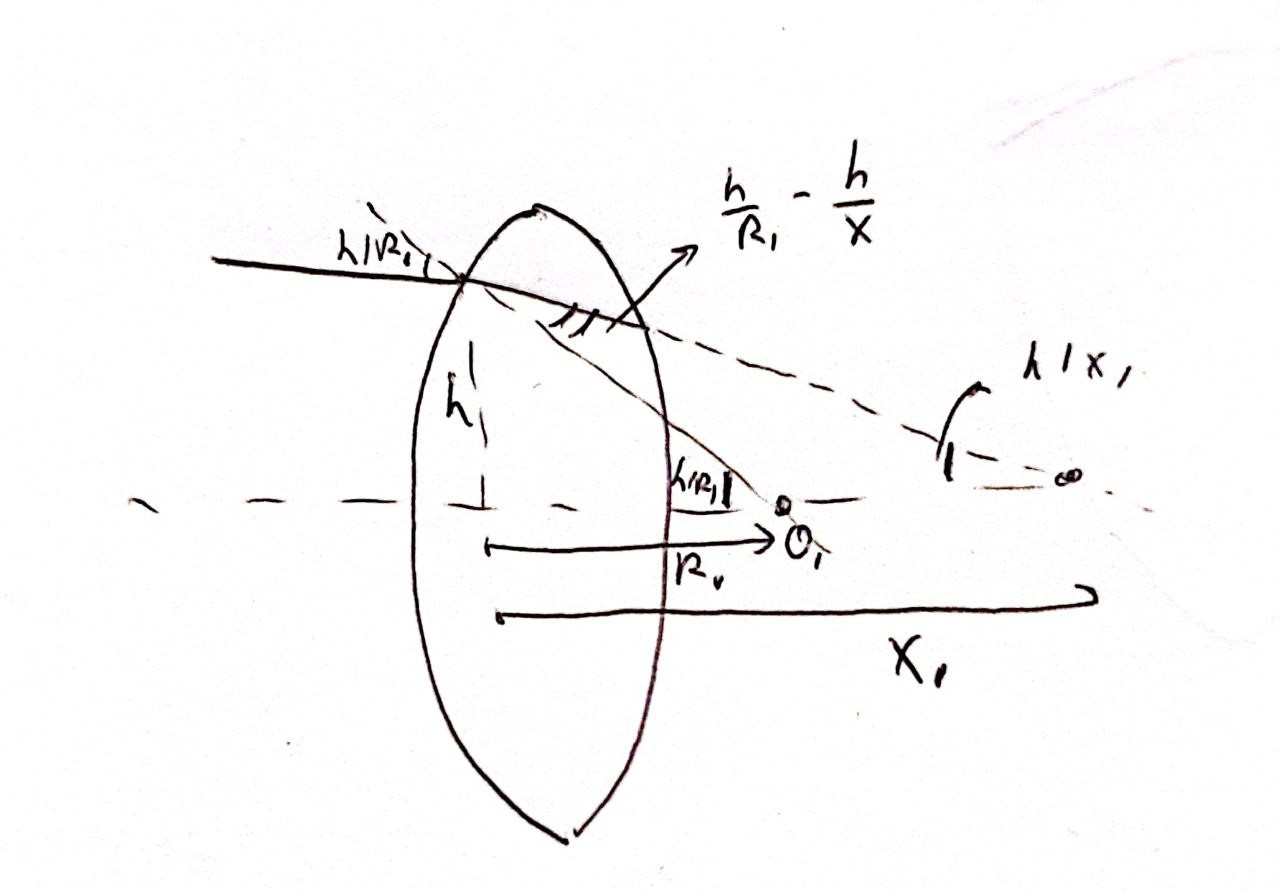 h/R₁ - h/x
h/R₁
h/x₁
h
h/R₁
O₁
R₁
X₁